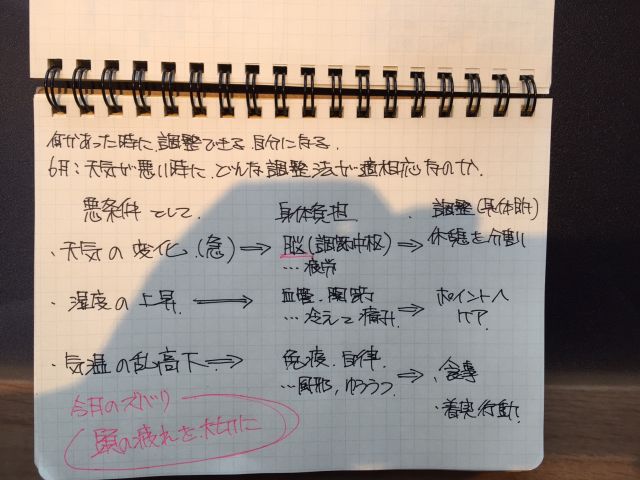 何かあった時に、調整できる自分になる。
6月：天気が悪い時に、どんな調整法が適相応なのか。
悪条件として 身体負担 調整(身体的)
・天気の変化(急) ⇒ 脳(調節中枢) → 休憩を分割
…疲労
・湿度の上昇 → 血管・関節 → ポイントへ
…冷えて痛み ケア
・気温の乱高下 → 免疫・自律 → ・食事
…風邪、ゆううつ ・着実行動
今月のズバリ
頭の疲れを大切に